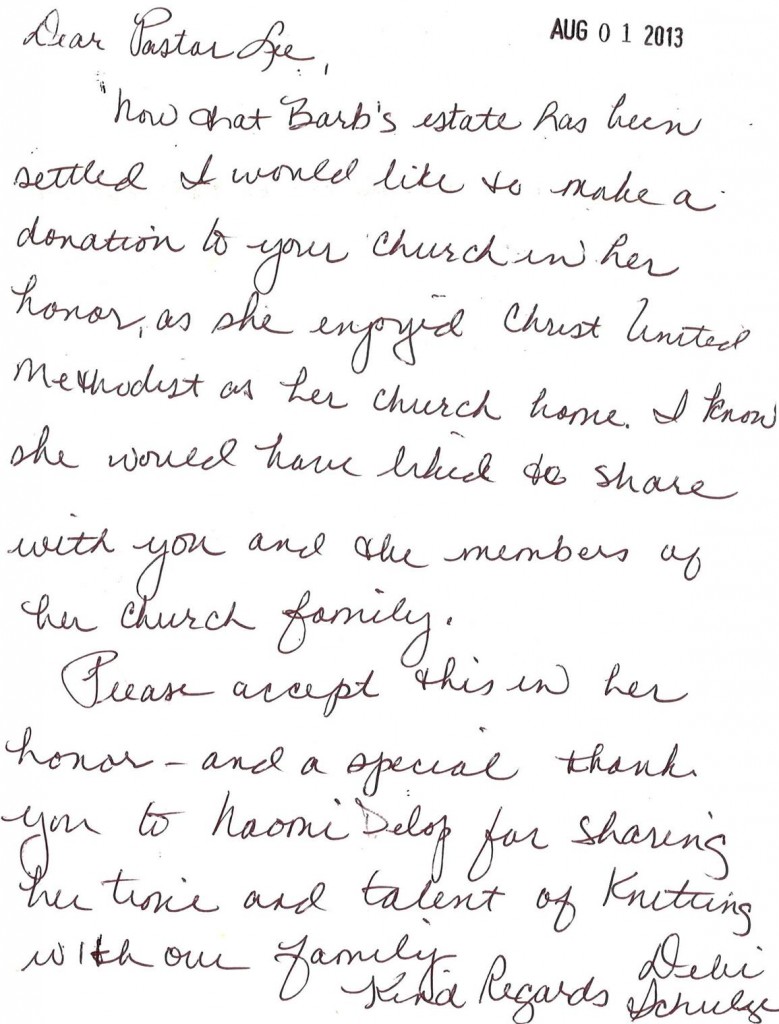 AUG 01 2013
Dear Pastor Lee,
Now that Barb's estate has been
settled I would like to make a
donation to your church in her
honor, as she enjoyed Christ United
Methodist as her church home. I know
she would have liked to share
with you and the members of
her church family.
Please accept this in her
honor - and a special thank
you to Naomi Delop for sharing
her time and talent of Knitting
with our family
Kind Regards Debi
Schulze